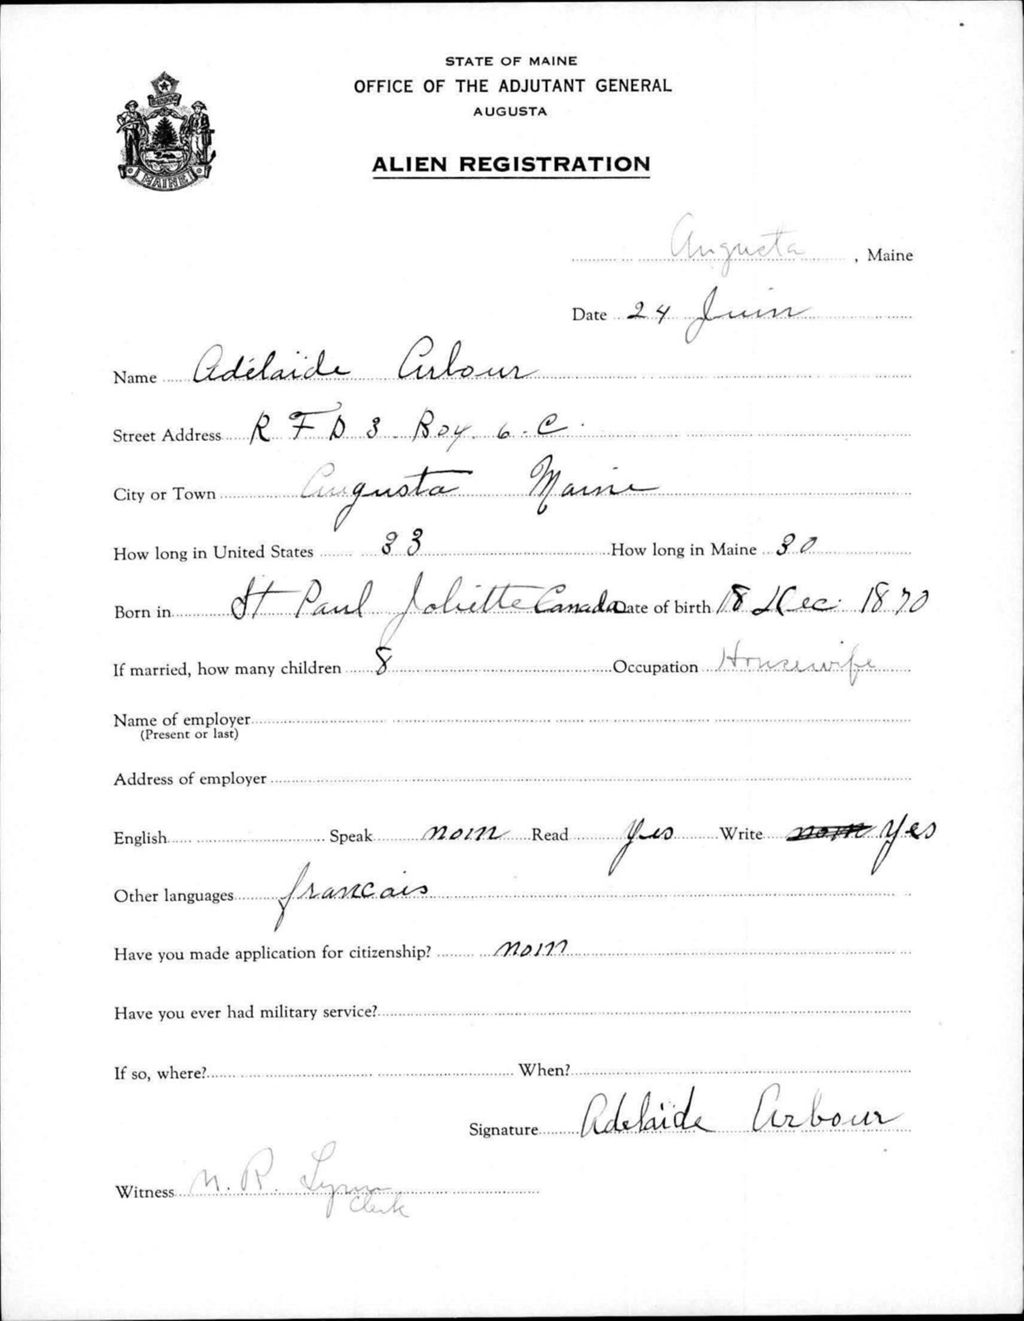 STATE OF MAINE
OFFICE OF THE ADJUTANT GENERAL
AUGUSTA
ALIEN REGISTRATION
MAINE
Augusta, Maine
Date 24 Juin
Name Adélaïde Arbour
Street Address R F D 3. Box 6. C.
City or Town Augusta Maine
How long in United States 33 How long in Maine 30
Born in St Paul Joliette Canada Date of birth 18 Dec. 1870
If married, how many children 8 Occupation Housewife
Name of employer
(Present or last)
Address of employer
English Speak nom Read yes Write nom yes
Other languages francais
Have you made application for citizenship? nom
Have you ever had military service?
If so, where? When?
Signature Adelaïde Arbour
Witness N. R. Lynn
Clerk